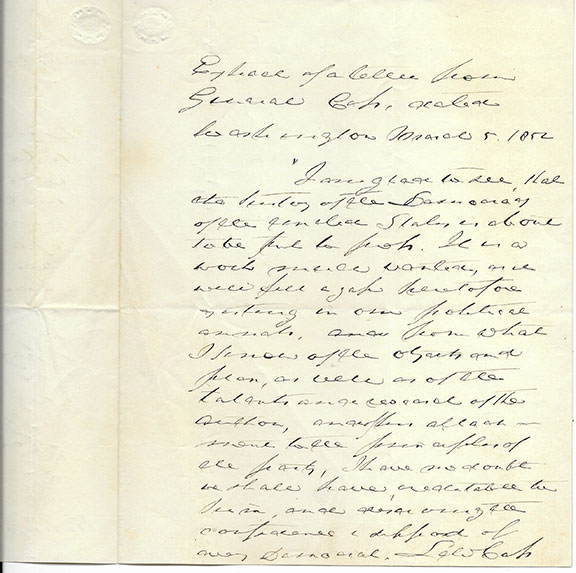 Extract of a letter from
General Cass, dated
Washington March 5. 1852
"I am glad to see, that
the history of the Democracy
of the United States is about
to be put to press. It is a
work much wanted, and
will fill a gap heretofore
existing in our political
annals, and from what
I know of the objects and
plan, as well as of the
talents and research of the
author, and his attach-
ment to the principles of
the party, I have no doubt
we shall have, creditable to
him, and deserving the
confidence & support of
every Democrat. Lew Cass